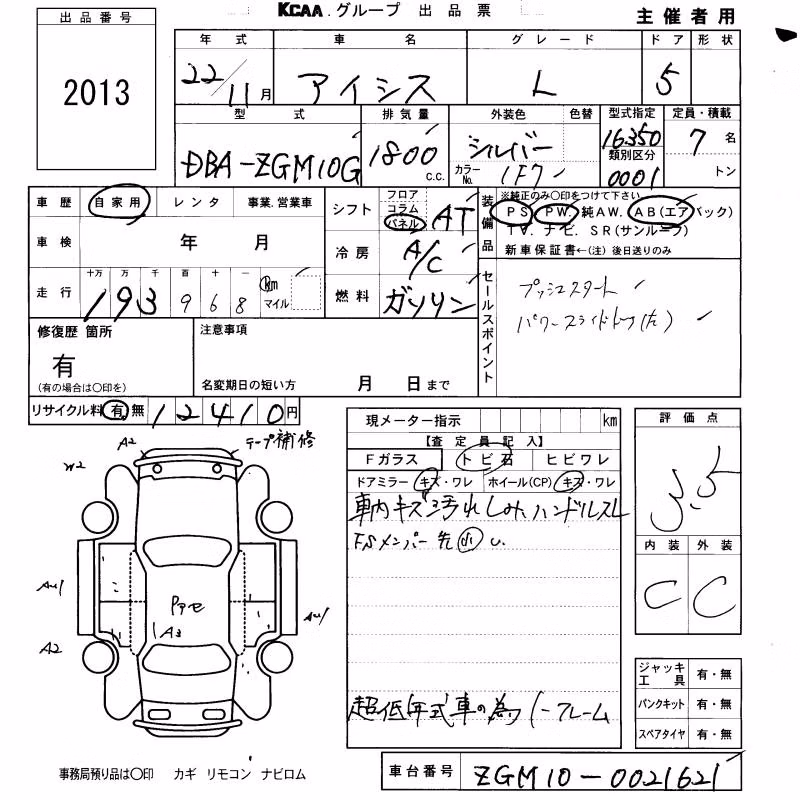 KCAA. グループ 出品票 主催者用
出品番号
2013
年式 車名 グレード ドア 形状
22/11月 アイシス L 5
型式 排気量 外装色 色替 型式指定 定員・積載
DBA-ZGM10G 1800 c.c. シルバー カラーNo. 1F7 16350 類別区分 0001 7名 トン
車歴 自家用 レンタ 事業.営業車
シフト フロア コラム パネル AT
装備品 ※純正のみ〇印をつけて下さい
PS PW. 純AW. AB(エアバック)
TV. ナビ. SR(サンルーフ)
新車保証書←(注) 後日送りのみ
車検 年 月
冷房 A/C
走行 十万 万 千 百 十 一
193968 km マイル
燃料 ガソリン
セールスポイント
プッシュスタート
パワースライドドア(左)
修復歴 箇所
有
(有の場合は〇印を)
注意事項
名変期日の短い方 月 日まで
リサイクル料 有. 無 12410円
現メーター指示 km
【査定員記入】
Fガラス トビ石 ヒビワレ
ドアミラー キズ・ワレ ホイール(CP) キズ・ワレ
車内キズ汚れしみ、ハンドルスレ
FSメンバー先 小 U.
超低年式車の為ノーフレーム
評価点
3.5
内装 外装
C C
A2 テープ補修
W2
AU1
A2
Pアセ
A3
AU1
ジャッキ工具 有・無
パンクキット 有・無
スペアタイヤ 有・無
事務局預り品は〇印 カギ リモコン ナビロム
車台番号 ZGM10-0021621